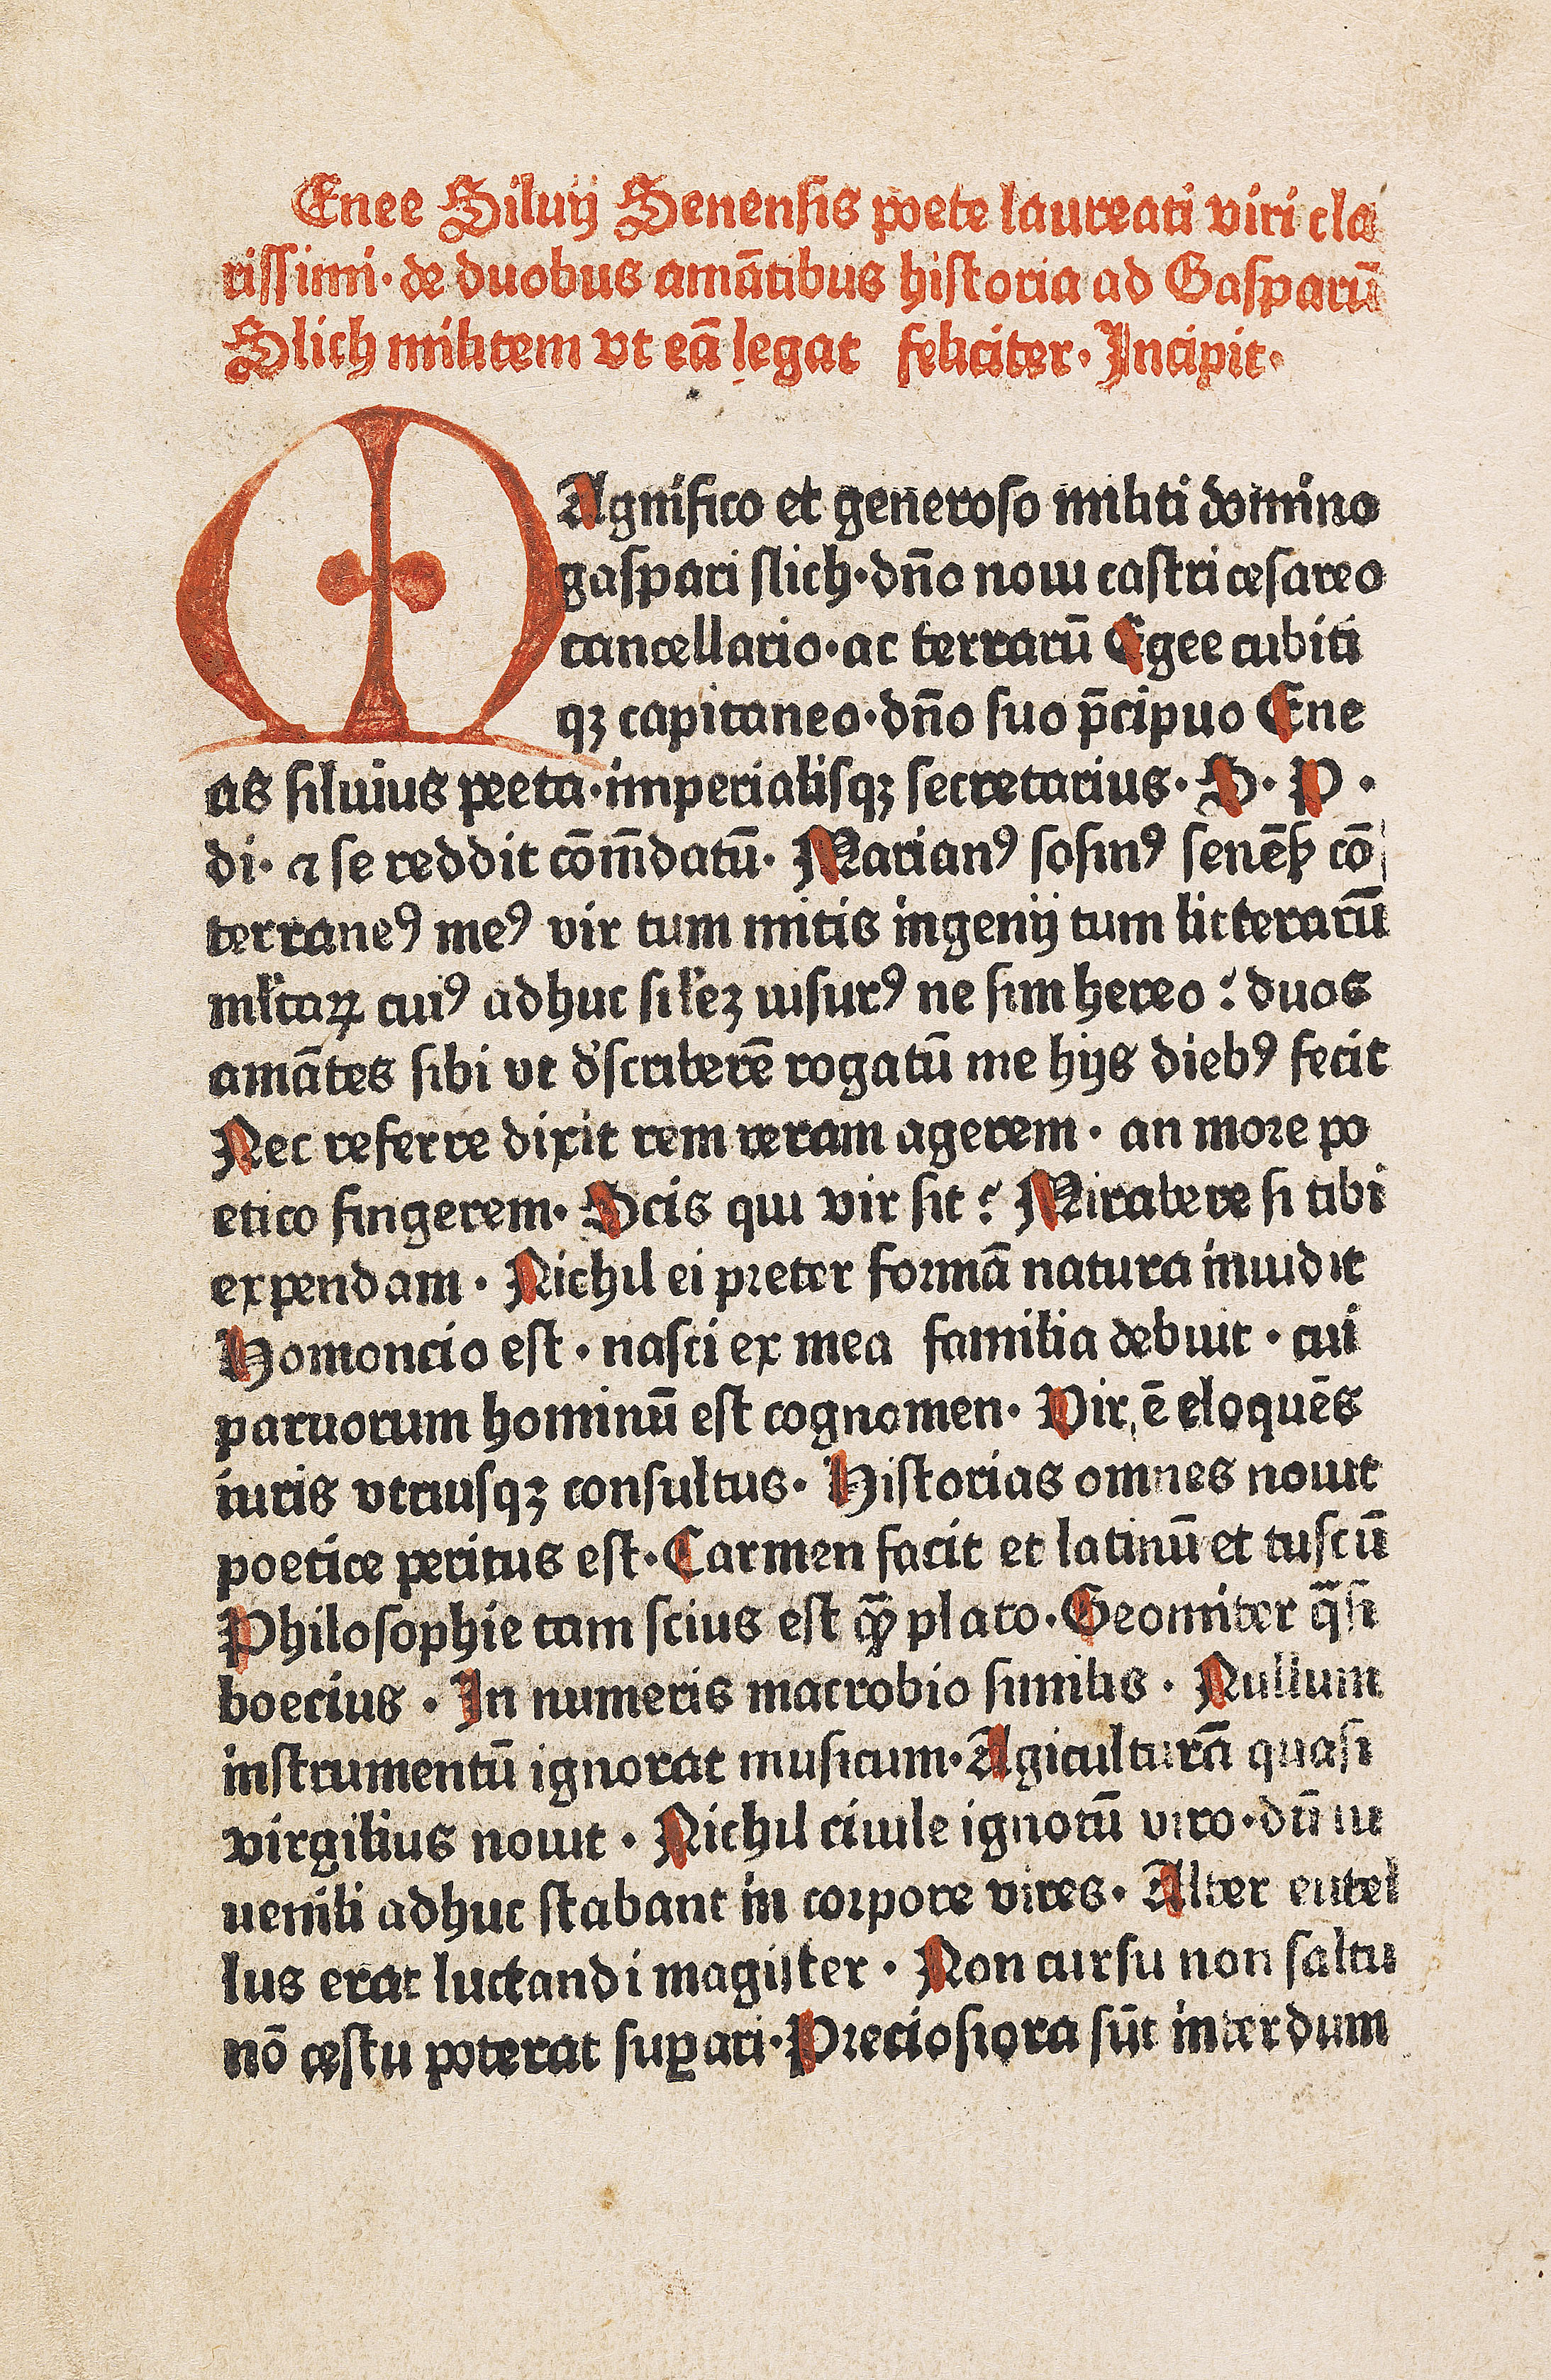 Enee Siluij Senensis poete laureati viri cla
rissimi· de duobus amātibus historia ad Gasparū
Slich militem vt eā legat feliciter· Incipit·
MAgnifico et generoso militi domino
gaspari slich·dn̄o noui castri cesareo
cancellario·ac terrarū Egee cubiti
qꝫ capitaneo·dn̄o suo p̄cipuo Ene
as siluius poeta·imperialisqꝫ secretarius· S· P·
di· ⁊ se reddit cōm̄datū· Marianꝰ sosinꝰ senēſꝭ cō
terraneꝰ meꝰ vir tum mitis ingenij tum litterarū
ml'taꝝ cuiꝰ adhuc sil'eꝫ uisurꝰ ne sim hereo : duos
amātes sibi vt d'scriberē rogatū me hijs diebꝰ fecit
Nec referre dixit rem veram agerem· an more po
etico fingerem· Scis qui vir sit ? Mirabere si tibi
expendam· Nichil ei preter formā natura inuidit
Homoncio est· nasci ex mea familia debuit· cui
paruorum hominū est cognomen· Vir ē eloquēs
iuris vtriusqꝫ consultus· Historias omnes nouit
poetice peritus est·Carmen facit et latinū et tuscū
Philosophie tam scius est qꝫ̄ plato·Geomiter q̄si
boecius· In numeris macrobio similis· Nullum
instrumentū ignorat musicum·Agiculturā quasi
virgilius nouit· Nichil ciuile ignotū viro·dū iu
uenili adhuc stabant in corpore vires· Alter entel
lus erat luctandi magister· Non cursu non saltu
nō cestu poterat suꝑari·Preciosiora sūt interdum